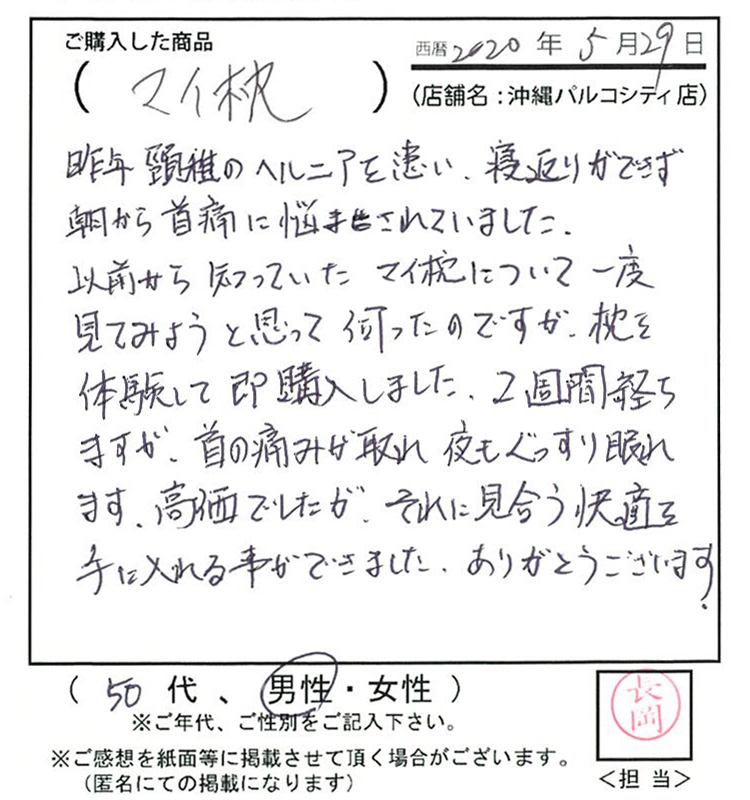 ご購入した商品
西暦2020年5月29日
(マイ枕)
(店舗名:沖縄パルコシティ店)
昨年 頸椎のヘルニアを患い、寝返りができず
朝から首痛に悩まされていました.
以前から知っていたマイ枕について一度
見てみようと思って伺ったのですが、枕を
体験して即購入しました、2週間経ち
ますが、首の痛みが取れ夜もぐっすり眠れ
ます、高価でしたが、それに見合う快適を
手に入れる事ができました、ありがとうございます.
(50代、男性・女性)
※ご年代、ご性別をご記入下さい。
※ご感想を紙面等に掲載させて頂く場合がございます。
(匿名にての掲載になります)
長岡
<担当>